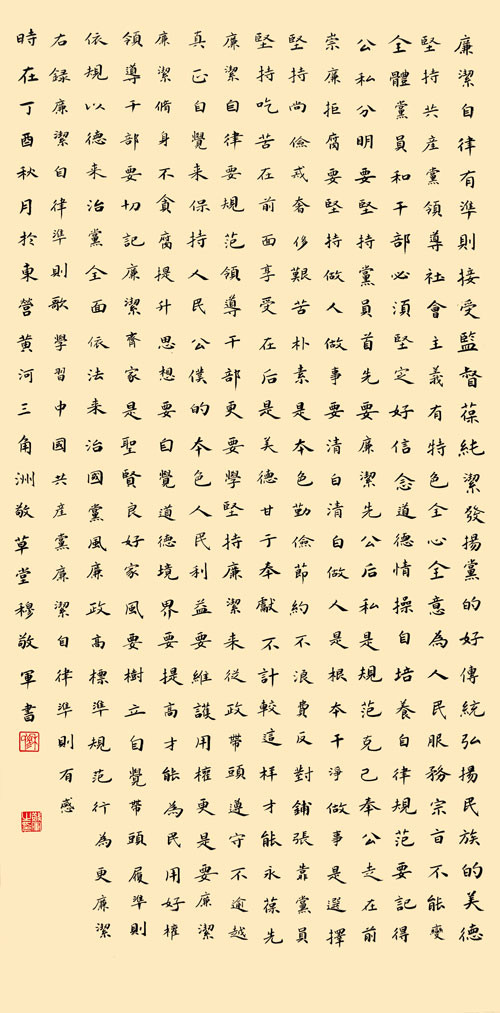 廉潔自律有準則接受監督葆純潔發揚黨的好傳統弘揚民族的美德
堅持共産黨領導社會主義有特色全心全意為人民服務宗旨不能變
全體黨員和干部必須堅定好信念道德情操自培養自律規范要記得
公私分明要堅持黨員首先要廉潔先公后私是規范克己奉公走在前
崇廉拒腐要堅持做人做事要清白清白做人是根本干淨做事是選擇
堅持尚儉戒奢侈艱苦朴素是本色勤儉節約不浪費反對鋪張靠黨員
堅持吃苦在前面享受在后是美德甘于奉獻不計較這样才能永葆先
廉潔自律要規范領導干部更要學堅持廉潔来從政帶頭遵守不逾越
真正自覺来保持人民公僕的本色人民利益要維護用權更是要廉潔
廉潔脩身不貪腐提升思想要自覺道德境界要提高才能為民用好權
領導干部要切記廉潔齊家是聖賢良好家風要樹立自覺帶頭履準則
依規以德来治黨全面依法来治國黨風廉政高標準規范行為更廉潔
右録廉潔自律準則歌學習中國共産黨廉潔自律準則有感
時在丁酉秋月於東營黄河三角洲敬草堂穆敬軍書